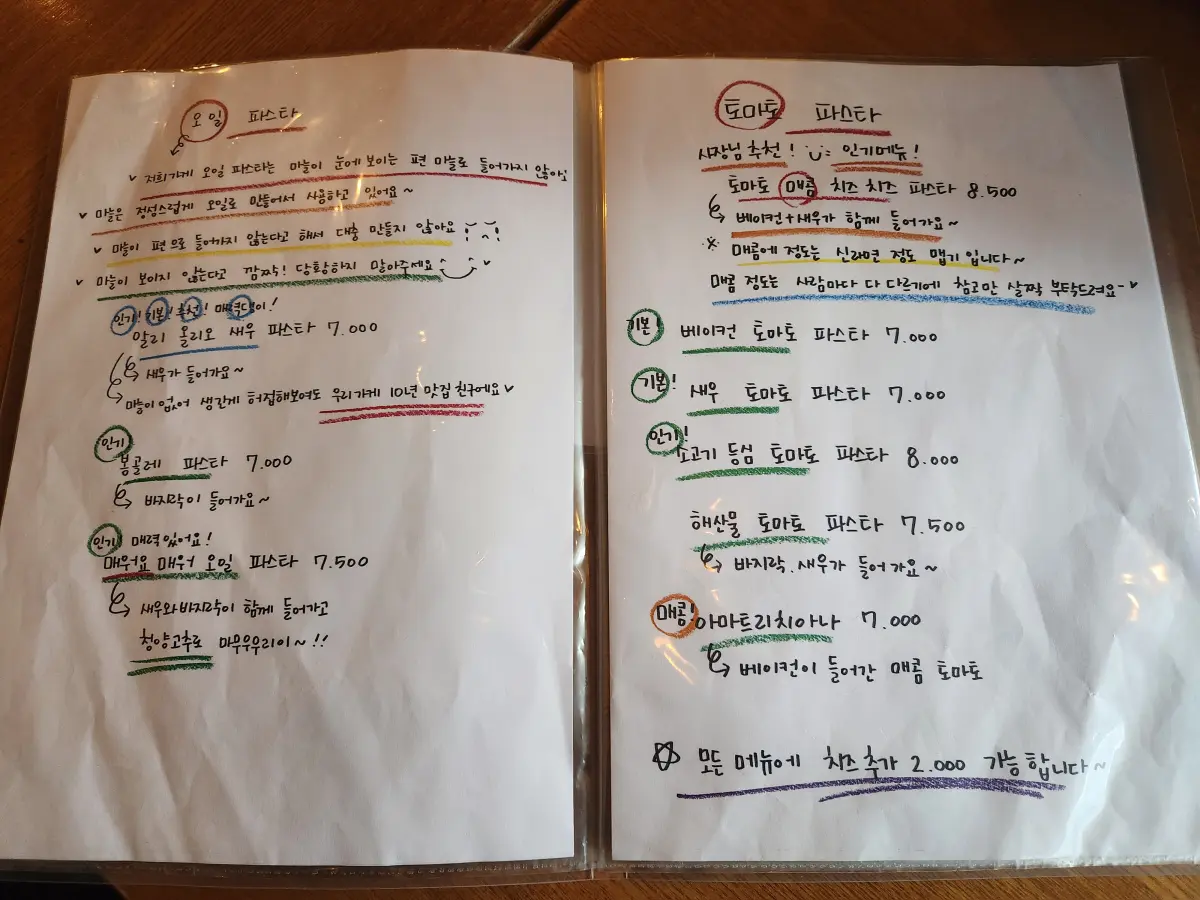 오일 파스타
저희가게 오일 파스타는 마늘이 눈에 보이는 편 마늘로 들어가지 않아요
마늘은 정성스럽게 오일로 만들어서 사용하고 있어요~
마늘이 편으로 들어가지 않는다고 해서 대충 만들지 않아요
마늘이 보이지 않는다고 깜짝! 당황하지 말아주세요
인기! 기본! 추천! 매력덩이!
알리 올리오 새우 파스타 7.000
새우가 들어가요~
마늘이 없어 생간게 허접해보여도 우리가게 10년 맛집 친구에요
인기
봉골레 파스타 7.000
바지락이 들어가요~
인기 매력있어요!
매워요 매워 오일 파스타 7.500
새우와 바지락이 함께 들어가고
청양고추로 마무우우리이~!!
토마토 파스타
사장님 추천! 인기메뉴!
토마토 매콤 치즈 치즈 파스타 8.500
베이컨+새우가 함께 들어가요~
※ 매콤에 정도는 신라면 정도 맵기 입니다~
매콤 정도는 사람마다 다 다르기에 참고만 살짝 부탁드려요~
기본!
베이컨 토마토 파스타 7.000
기본!
새우 토마토 파스타 7.000
인기!
소고기 등심 토마토 파스타 8.000
해산물 토마토 파스타 7.500
바지락.새우가 들어가요~
매콤! 아마트리치아나 7.000
베이컨이 들어간 매콤 토마토
모든 메뉴에 치즈추가 2.000 가능합니다~